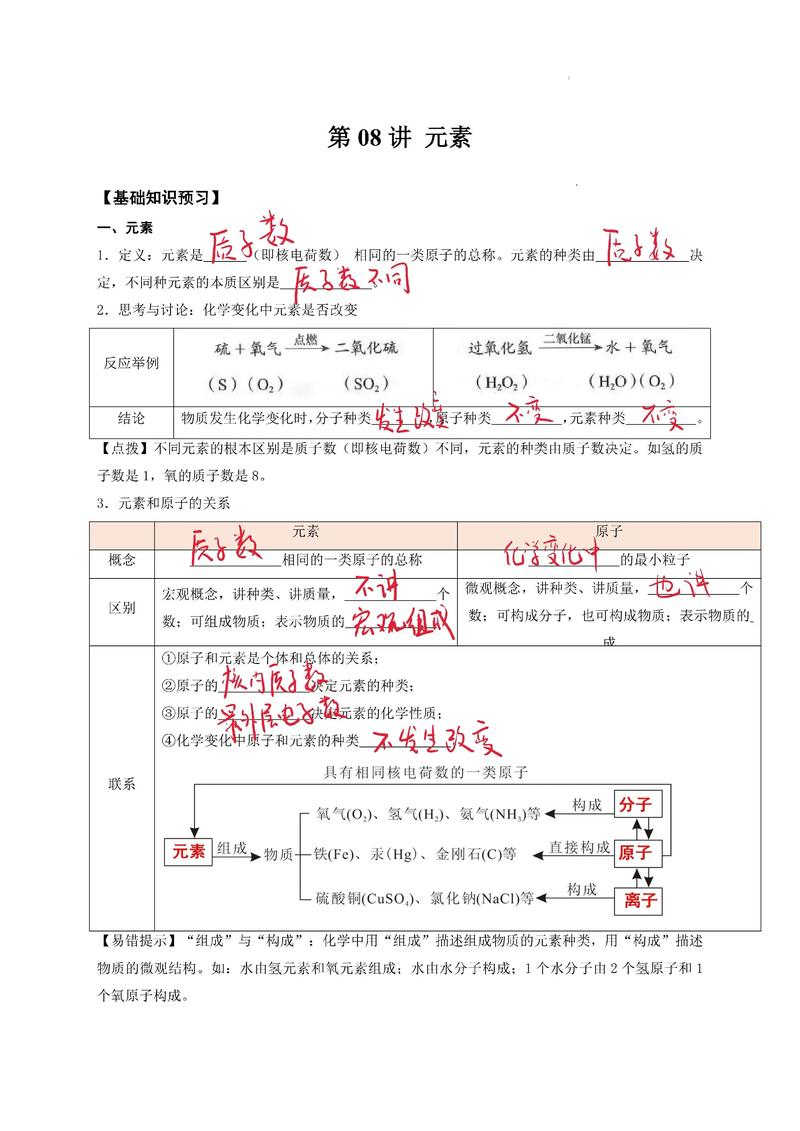 第 08 讲 元素
【基础知识预习】
一、元素
1．定义：元素是质子数（即核电荷数） 相同的一类原子的总称。元素的种类由质子数决
定，不同种元素的本质区别是质子数不同。
2．思考与讨论：化学变化中元素是否改变
反应举例
硫＋氧气 点燃→ 二氧化硫
（S）（O₂） （SO₂）
过氧化氢 二氧化锰→ 水＋氧气
（H₂O₂） （H₂O）（O₂）
结论 物质发生化学变化时，分子种类发生改变，原子种类不变，元素种类不变。
【点拨】不同元素的根本区别是质子数（即核电荷数）不同，元素的种类由质子数决定。如氢的质
子数是 1，氧的质子数是 8。
3．元素和原子的关系
元素 原子
概念 质子数相同的一类原子的总称 化学变化中的最小粒子
区别
宏观概念，讲种类、讲质量，不讲个
数；可组成物质；表示物质的宏观组成
微观概念，讲种类、讲质量，也讲个
数；可构成分子，也可构成物质；表示物质的
成
联系
①原子和元素是个体和总体的关系；
②原子的核内质子数决定元素的种类；
③原子的最外层电子数决定元素的化学性质；
④化学变化中原子和元素的种类不发生改变
具有相同核电荷数的一类原子
氧气(O₂)、氢气(H₂)、氨气(NH₃)等 构成 分子
元素 组成 物质 铁(Fe)、汞(Hg)、金刚石(C)等 直接构成 原子
硫酸铜(CuSO₄)、氯化钠(NaCl)等 构成 离子
【易错提示】“组成”与“构成”：化学中用“组成”描述组成物质的元素种类，用“构成”描述
物质的微观结构。如：水由氢元素和氧元素组成；水由水分子构成；1 个水分子由 2 个氢原子和 1
个氧原子构成。